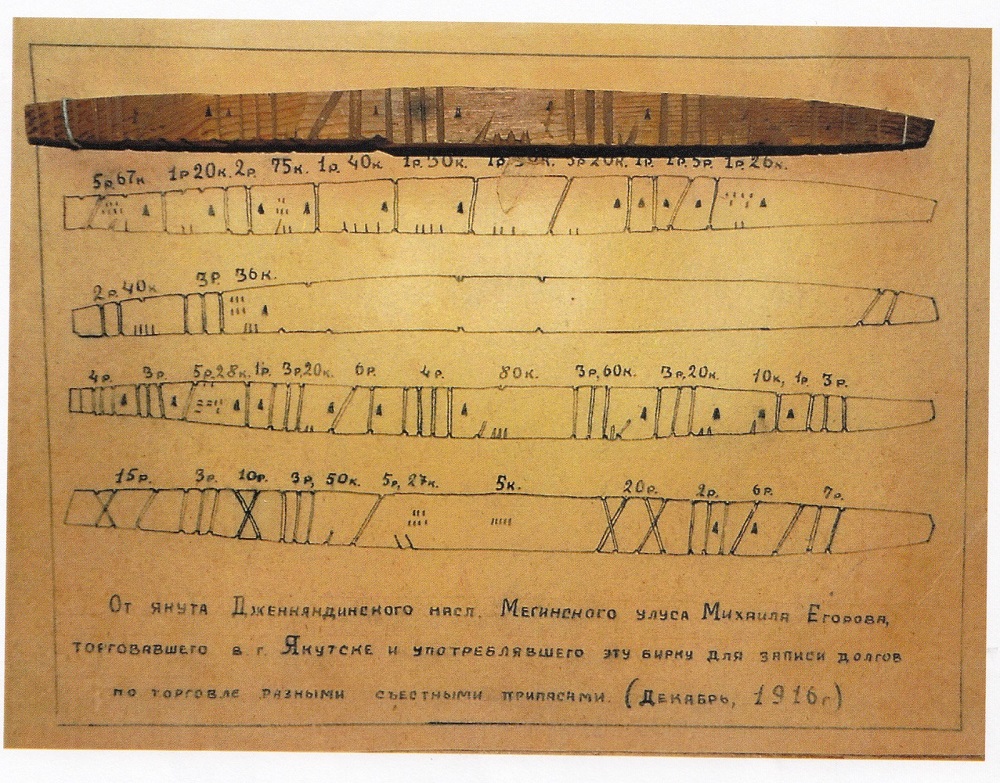 5р. 67к 1р 20к. 2р. 75к. 1р. 40к. 1р. 30к. 1р. 3р 20к. 1р. 1р. 5р. 1р. 26к.
2р 40к 3р. 36к.
4р. 3р. 5р. 28к. 1р. 3р, 20к. 6р. 4р. 80к. 3р, 60к. 3р. 20к. 10к, 1р. 3р.
15р. 3р. 10р. 3р, 50к. 5р, 27к. 5к. 20р. 2р. 6р. 7р.
От якута Дженкяндинского насл. Мегинского улуса Михаила Егорова,
торговавшего в г. Якутске и употреблявшего эту бирку для записи долгов
по торговле разными съестными припасами. (Декабрь, 1916г)